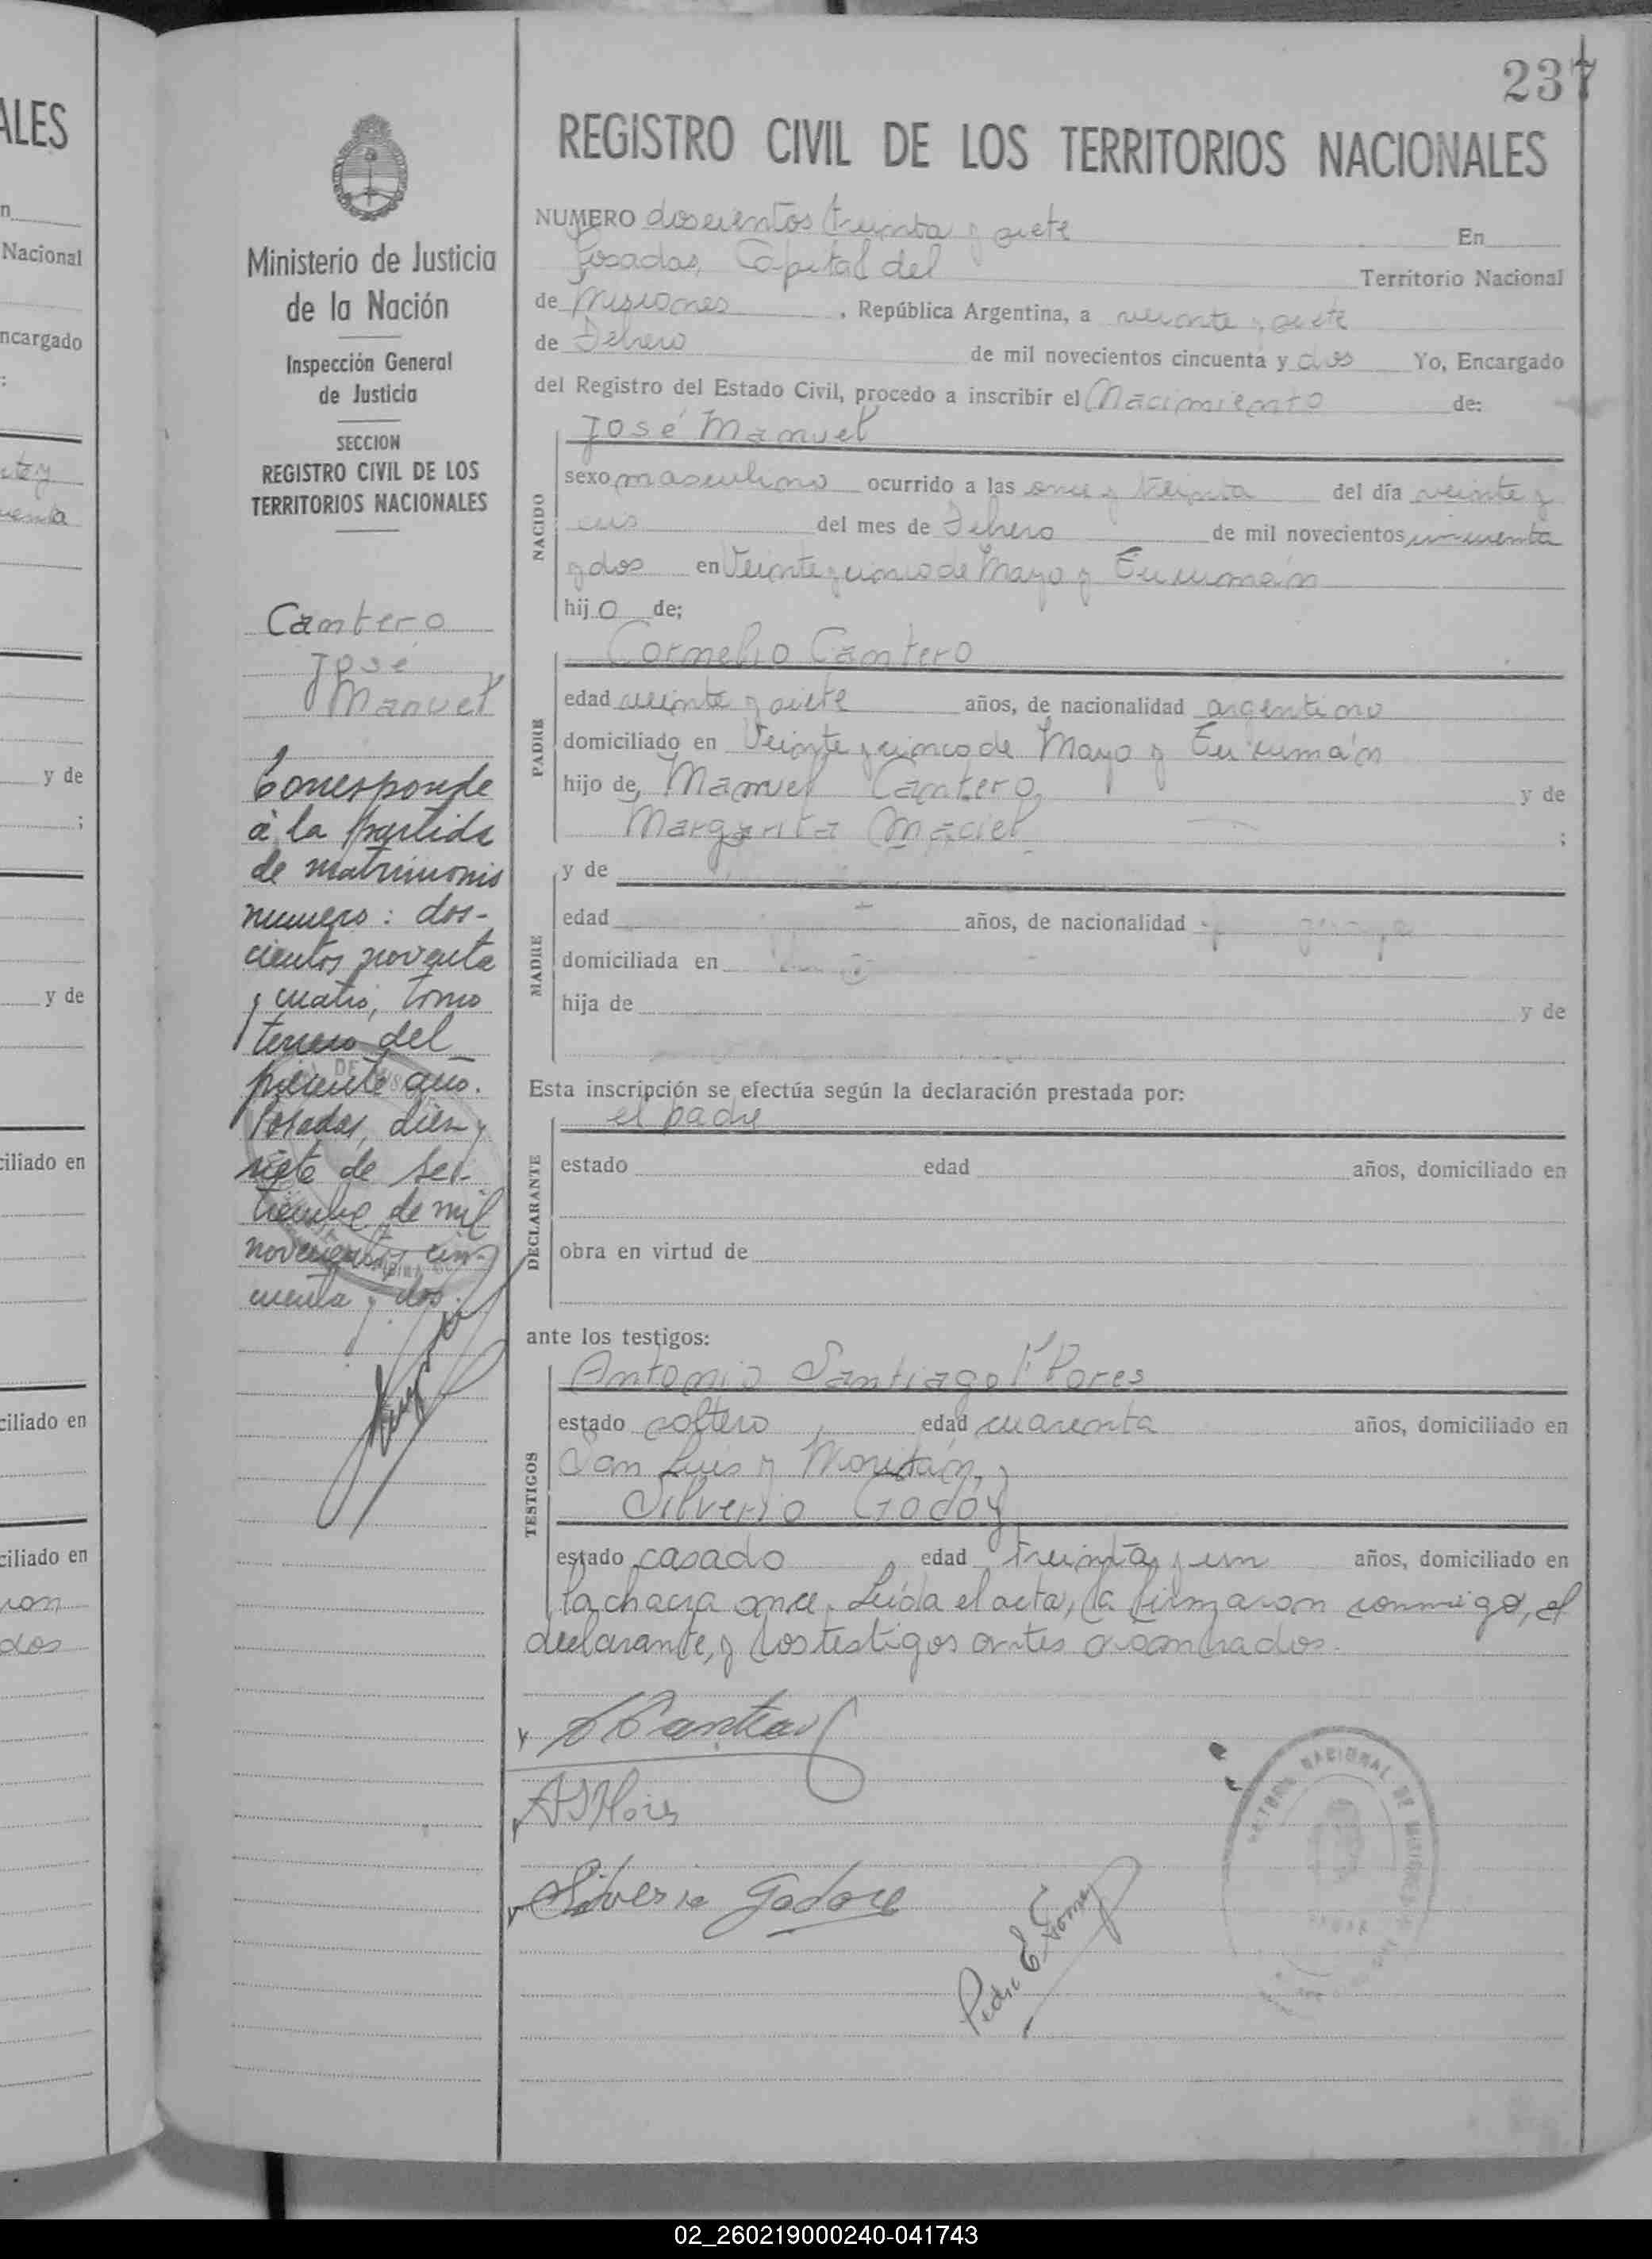 237
REGISTRO CIVIL DE LOS TERRITORIOS NACIONALES
NUMERO doscientos treinta y siete En
Posadas, Capital del Territorio Nacional
de Misiones, República Argentina, a veinte y siete
de Febrero de mil novecientos cincuenta y dos Yo, Encargado
del Registro del Estado Civil, procedo a inscribir el Nacimiento de:
NACIDO
José Manuel
sexo masculino ocurrido a las once y treinta del día veinte y
seis del mes de Febrero de mil novecientos cincuenta
y dos en Veinte y cinco de Mayo y Tucumán
hijo de;
PADRE
Cornelio Cantero
edad veinte y siete años, de nacionalidad argentino
domiciliado en Veinte y cinco de Mayo y Tucumán
hijo de, Manuel Cantero, y de
Margarita Maciel ;
MADRE
y de
edad años, de nacionalidad
domiciliada en
hija de y de
Esta inscripción se efectúa según la declaración prestada por:
DECLARANTE
el padre
estado edad años, domiciliado en
obra en virtud de
ante los testigos:
TESTIGOS
Antonio Santiago Flores
estado soltero edad cuarenta años, domiciliado en
San Luis y
Silverio Godoy
estado casado edad treinta y un años, domiciliado en
la chacra once. Leída el acta, la firmaron conmigo, el
declarante, y los testigos antes nombrados.
Silverio Godoy
Ministerio de Justicia
de la Nación
Inspección General
de Justicia
SECCION
REGISTRO CIVIL DE LOS
TERRITORIOS NACIONALES
Cantero
José
Manuel
Corresponde
a la partida
de matrimonio
numero: dos-
cientos noventa
y cuatro, tomo
tercero del
presente año.
Posadas, diez y
siete de Sep-
tiembre de mil
novecientos cin-
cuenta y dos.
ALES
n
Nacional
ncargado
:
y de
;
y de
ciliado en
ciliado en
ciliado en
ron
dos
02_260219000240-041743